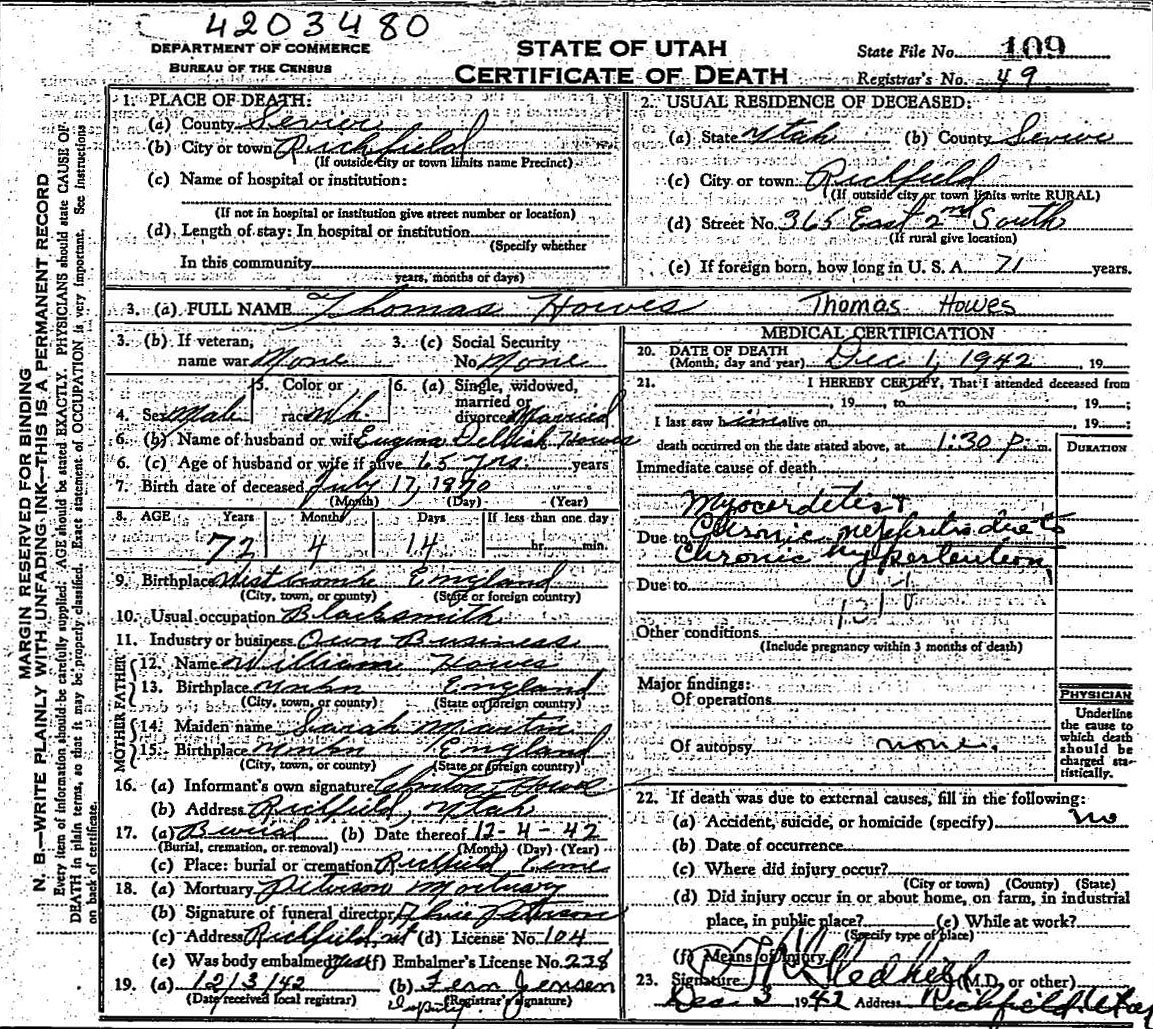 4203480
DEPARTMENT OF COMMERCE
BUREAU OF THE CENSUS
STATE OF UTAH
CERTIFICATE OF DEATH
State File No. 109
Registrar's No. 49
MARGIN RESERVED FOR BINDING
N. B.—WRITE PLAINLY WITH UNFADING INK—THIS IS A PERMANENT RECORD
Every item of information should be carefully supplied. AGE should be stated EXACTLY. PHYSICIANS should state CAUSE OF
DEATH in plain terms, so that it may be properly classified. Exact statement of OCCUPATION is very important. See instructions
on back of certificate.
1. PLACE OF DEATH:
(a) County Sevier
(b) City or town Richfield
(If outside city or town limits name Precinct)
(c) Name of hospital or institution:
(If not in hospital or institution give street number or location)
(d) Length of stay: In hospital or institution
(Specify whether
In this community
years, months or days)
2. USUAL RESIDENCE OF DECEASED:
(a) State Utah (b) County Sevier
(c) City or town Richfield
(If outside city or town limits write RURAL)
(d) Street No. 365 East 2nd South
(If rural give location)
(e) If foreign born, how long in U. S. A. 71 years.
3. (a) FULL NAME Thomas Howes Thomas Howes
3. (b) If veteran, name war None
3. (c) Social Security No. None
4. Sex Male
5. Color or race Wh.
6. (a) Single, widowed, married or divorced Married
6. (b) Name of husband or wife Delilah Howes
6. (c) Age of husband or wife if alive 65 yrs. years
7. Birth date of deceased July 17, 1870
(Month) (Day) (Year)
8. AGE Years Months Days If less than one day
72 4 14 hr. min.
9. Birthplace England
(City, town, or county) (State or foreign country)
10. Usual occupation Blacksmith
11. Industry or business Own Business
FATHER
12. Name William Howes
13. Birthplace Unkn England
(City, town, or county) (State or foreign country)
MOTHER
14. Maiden name Sarah Martin
15. Birthplace Unkn England
(City, town, or county) (State or foreign country)
16. (a) Informant's own signature
(b) Address Richfield, Utah
17. (a) Burial (b) Date thereof 12-4-42
(Burial, cremation, or removal) (Month) (Day) (Year)
(c) Place: burial or cremation Richfield
18. (a) Mortuary Peterson Mortuary
(b) Signature of funeral director Peterson
(c) Address Richfield, Ut (d) License No. 104
(e) Was body embalmed Yes (f) Embalmer's License No. 228
19. (a) 12/3/42 (b) Fern Jensen
(Date received local registrar) (Registrar's signature)
Deputy.
MEDICAL CERTIFICATION
20. DATE OF DEATH
(Month, day and year) Dec 1, 1942, 19
21. I HEREBY CERTIFY, That I attended deceased from
, 19 , to , 19 ;
I last saw him alive on , 19 ;
death occurred on the date stated above, at 1:30 p. m.
DURATION
Immediate cause of death
Myocardetes &
Due to Chronic nephritis due to
Chronic hypertention
Due to
131-b
Other conditions
(Include pregnancy within 3 months of death)
Major findings:
Of operations
Of autopsy none.
PHYSICIAN
Underline
the cause to
which death
should be
charged sta-
tistically.
22. If death was due to external causes, fill in the following:
(a) Accident, suicide, or homicide (specify) no
(b) Date of occurrence
(c) Where did injury occur?
(City or town) (County) (State)
(d) Did injury occur in or about home, on farm, in industrial
place, in public place? (e) While at work?
(Specify type of place)
(f) Means of injury
23. Signature Gledhill (M.D. or other)
Dec 3 1942 Address Richfield Utah